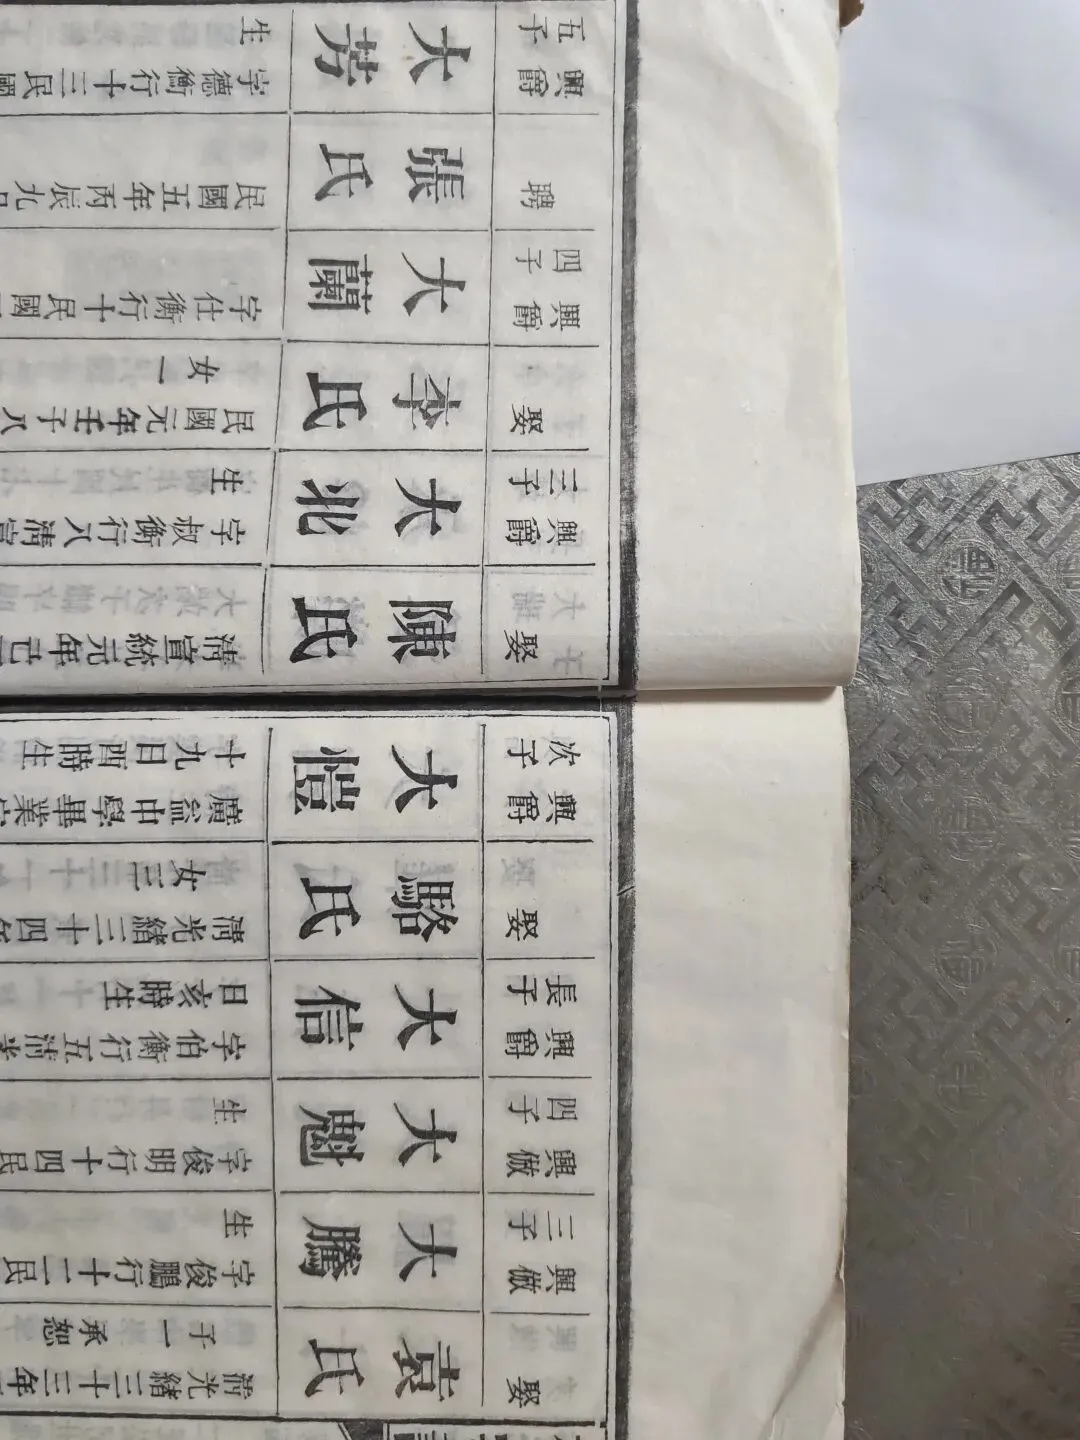 娶
袁氏
清光緒三十三年
子一承恕
興倣
三子
大騰
字俊鵬行十二民
生
興倣
四子
大魁
字俊明行十四民
生
興爵
長子
大信
字伯衡行五清光
日亥時生
娶
駱氏
清光緒三十四年
女三
興爵
次子
大愷
廣益中學畢業
十九日酉時生
娶
陳氏
清宣統元年己
興爵
三子
大北
字叔衡行八清宣
生
娶
李氏
民國元年壬子八
女一
興爵
四子
大蘭
字仕衡行十民國
聘
張氏
民國五年丙辰九
興爵
五子
大芳
字德衡行十三民國
生